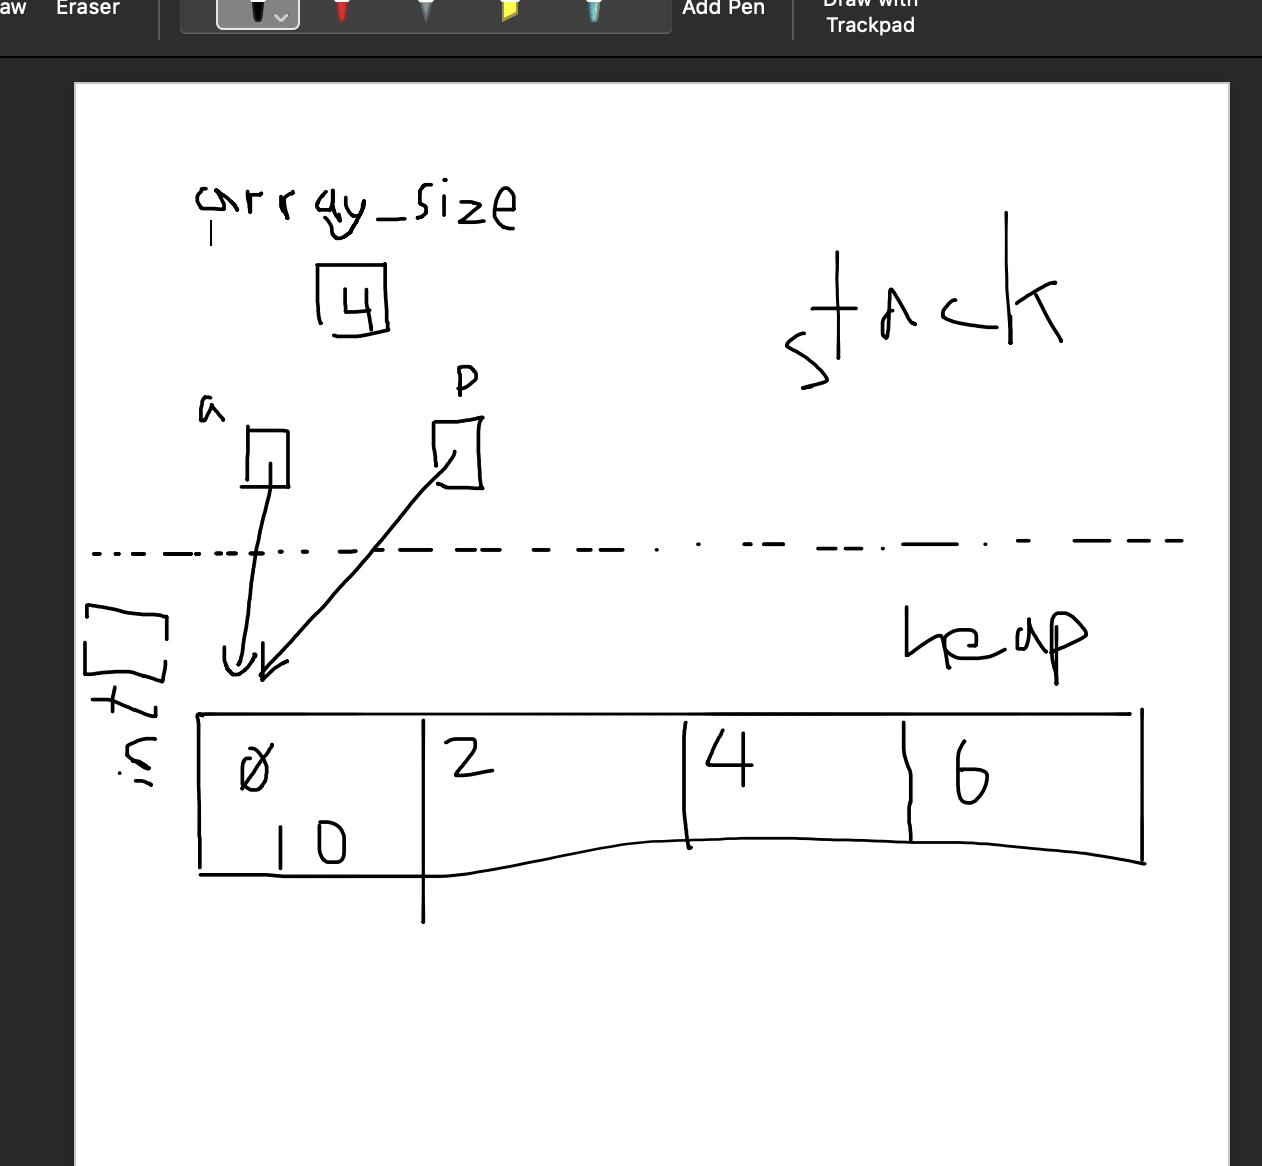 aw Eraser Add Pen Draw with
Trackpad
array_size
4
stack
p
a
heap
int[]
0 2 4 6
10